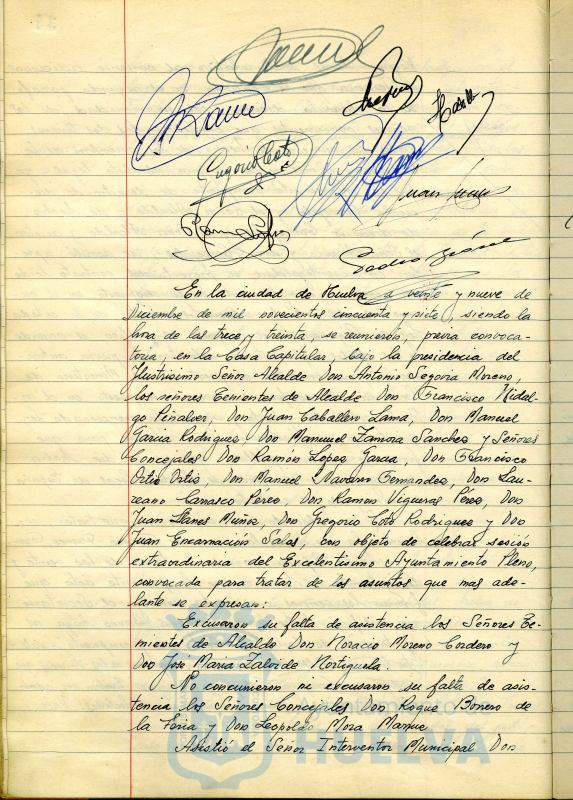 Gregorio Coto
En la ciudad de Huelva a veinte y nueve de
Diciembre de mil novecientos cincuenta y siete, siendo la
hora de las trece y treinta, se reunieron, previa convoca-
toria, en la Casa Capitular, bajo la presidencia del
Ilustrisimo Señor Alcalde Don Antonio Segovia Moreno,
los señores Tenientes de Alcalde Don Francisco Hidal-
go Peñalver, Don Juan Caballero Lama, Don Manuel
Garcia Rodriguez Don Manuel Zamora Sanchez y Señores
Concejales Don Ramón Lopez Garcia, Don Francisco
Ortiz Ortiz, Don Manuel Navarro Fernandez, Don Lau-
reano Carrasco Pérez, Don Ramon Vigueras Pérez, Don
Juan Llanes Muñoz, Don Gregorio Coto Rodriguez y Don
Juan Encarnación Salas, con objeto de celebrar sesión
extraordinaria del Excelentisimo Ayuntamiento Pleno,
convocada para tratar de los asuntos que mas ade-
lante se expresan:
Excusaron su falta de asistencia los Señores Te-
nientes de Alcalde Don Horacio Moreno Cordero y
Don Jose Maria Zalvide Hortiguela.
No concurrieron ni excusaron su falta de asis-
tencia los Señores Concejales Don Roque Bonero de
la Feria y Don Leopoldo Mora
Asistió el Señor Interventor Municipal Don
HUELVA